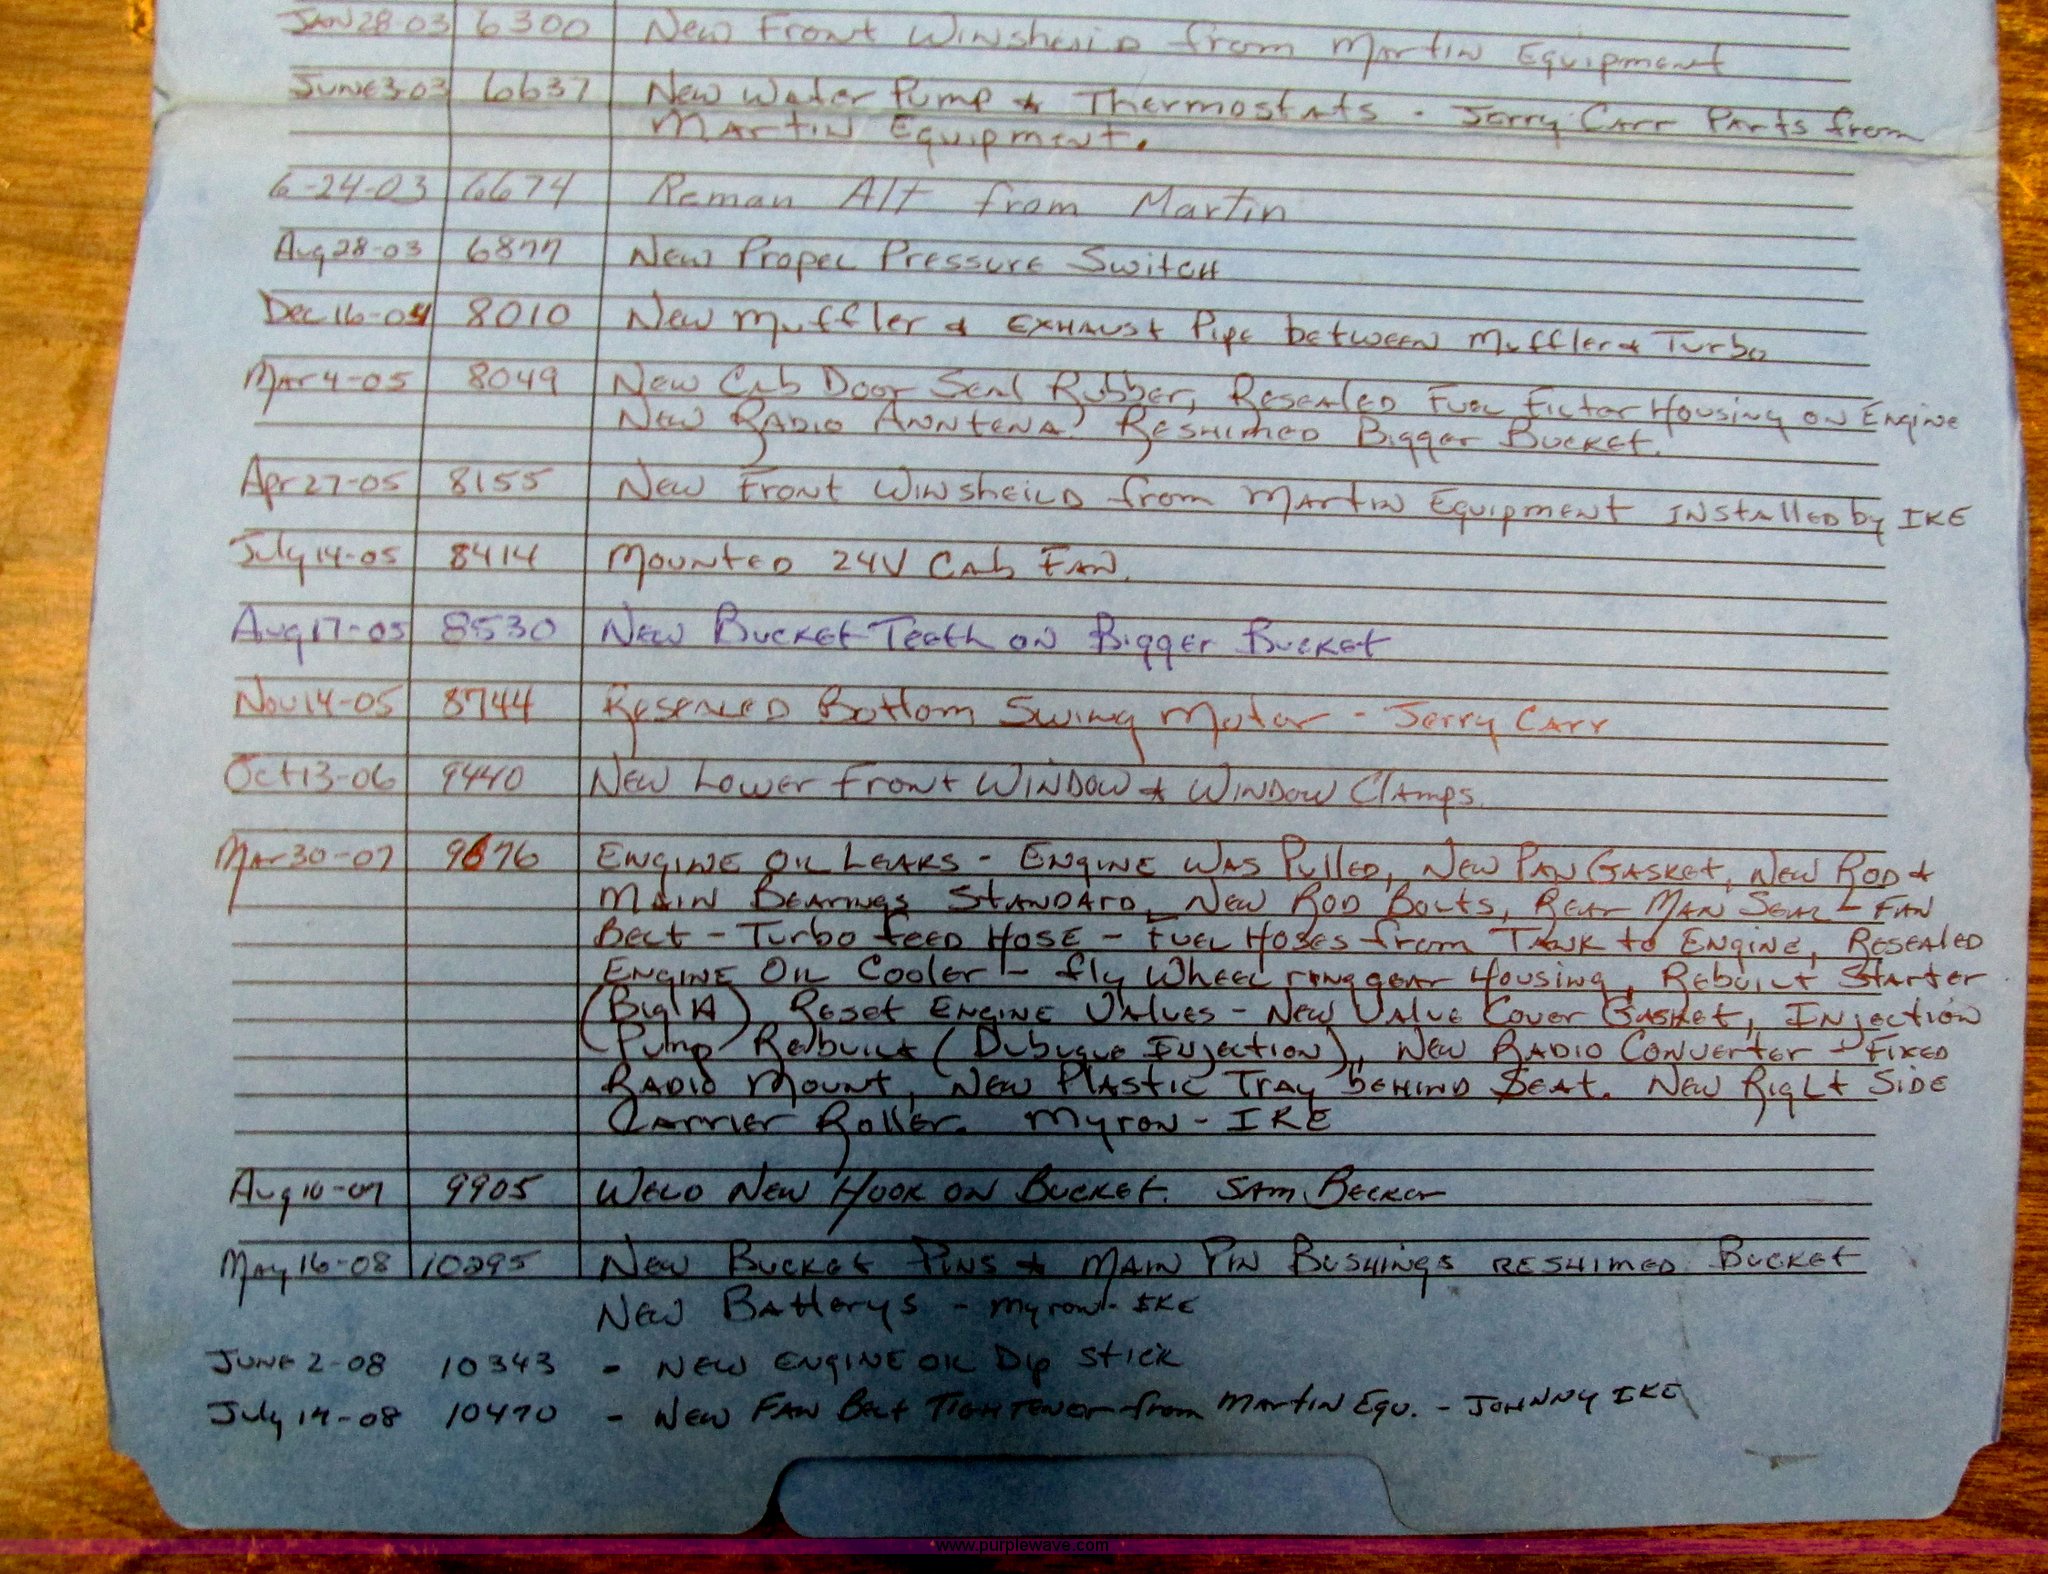 JAN 28-03 6300 New Front Winsheild from Martin Equipment
June 3-03 6637 New Water Pump & Thermostats - Jerry Carr Parts from
Martin Equipment.
6-24-03 6674 Reman Alt from Martin
Aug 28-03 6877 New Propel Pressure Switch
Dec 16-04 8010 New Muffler & Exhaust Pipe between Muffler & Turbo
Mar 4-05 8049 New Cab Door Seal Rubber, Resealed Fuel Filter Housing on Engine
New Radio Anntena. Reshimed Bigger Bucket.
Apr 27-05 8155 New Front Winsheild from Martin Equipment Installed by IKE
July 14-05 8414 Mounted 24V Cab Fan.
Aug 17-05 8530 New Bucket Teeth on Bigger Bucket
Nov 14-05 8744 Resealed Bottom Swing Motor - Jerry Carr
Oct 13-06 9440 New Lower Front Window & Window Clamps.
Mar 30-07 9676 Engine Oil Leaks - Engine Was Pulled, New Pan Gasket, New Rod &
Main Bearings Standard, New Rod Bolts, Rear Man Seal - Fan
Belt - Turbo feed Hose - Fuel Hoses from Tank to Engine, Resealed
Engine Oil Cooler - fly Wheel ring gear Housing, Rebuilt Starter
(Big A) Reset Engine Valves - New Valve Cover Gasket, Injection
Pump Rebuilt (Dubuque Injection), New Radio Converter - Fixed
Radio Mount, New Plastic Tray behind Seat. New Right Side
Carrier Roller. Myron - IKE
Aug 10-07 9905 Weld New Hook on Bucket. Sam Becker
May 16-08 10295 New Bucket Pins & Main Pin Bushings reshimed Bucket
New Batterys - Myron - IKE
June 2-08 10343 - New Engine Oil Dip Stick
July 14-08 10470 - New Fan Belt Tightener from Martin Equ. - Johnny IKE
www.purplewave.com